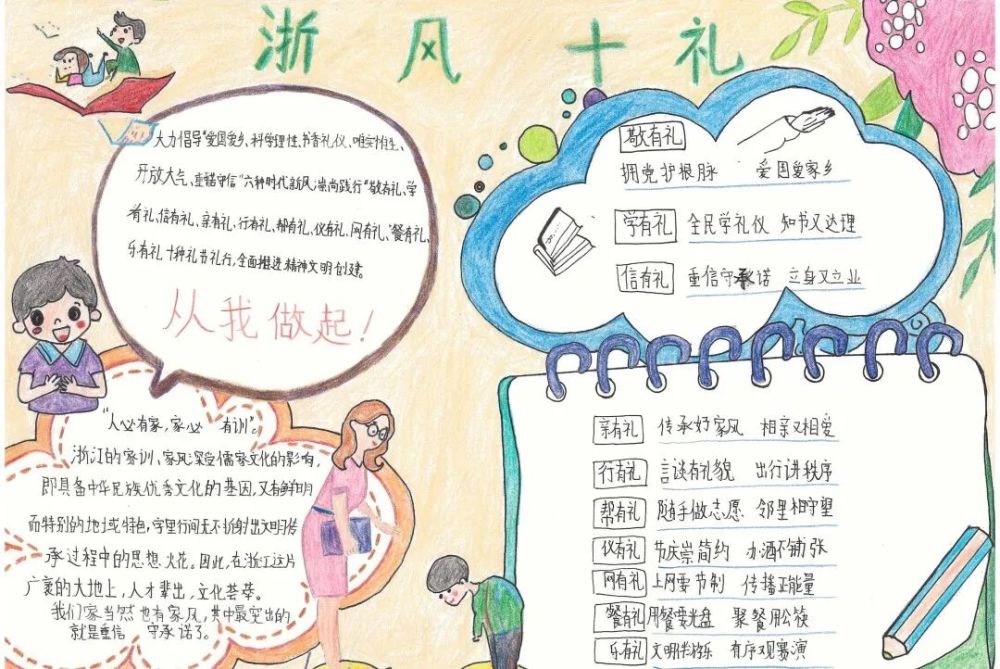 浙风十礼
大力倡导"爱国爱乡、科学理性、书香礼仪、唯实惟先、
开放大气、重诺守信"六种时代新风,崇尚践行"敬有礼、学
有礼、信有礼、亲有礼、行有礼、帮有礼、仪有礼、网有礼、餐有礼、
乐有礼"十种礼节礼行,全面推进精神文明创建。
从我做起!
"人必有家,家必有训"。
浙江的家训、家风深受儒家文化的影响,
即具备中华民族优秀文化的基因,又有鲜明
而特别的地域特色,字里行间无不折射出文明传
承过程中的思想火花。因此,在浙江这片
广袤的大地上,人才辈出,文化荟萃。
我们家当然也有家风,其中最突出的
就是重信守承诺了。
敬有礼
拥党护根脉 爱国爱家乡
学有礼 全民学礼仪 知书又达理
信有礼 重信守承诺 立身又立业
亲有礼 传承好家风 相亲又相爱
行有礼 言谈有礼貌 出行讲秩序
帮有礼 随手做志愿 邻里相守望
仪有礼 节庆崇简约 办酒不铺张
网有礼 上网要节制 传播正能量
餐有礼 用餐要光盘 聚餐用公筷
乐有礼 文明伴娱乐 有序观赛演